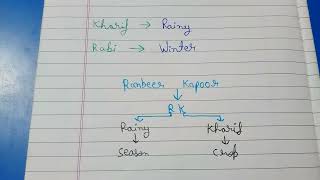 Kharif → Rainy
Rabi → Winter
Ranbeer Kapoor
R K
Rainy Kharif
Season Crop